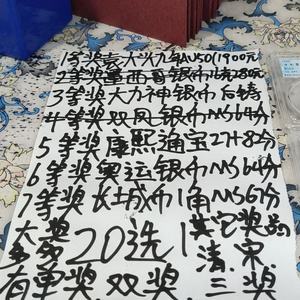 1等奖袁大头九年AU50(1900元
2等奖墨西哥银币 280元
3等奖大力神银币后铸
4等奖双凤银币MS64分
5等奖康熙通宝27+8分
6等奖奥运银币MS64分
7等奖长城币1角MS67分
大奖多多
20选1
其它奖品清.宋
有单奖.双奖.三奖